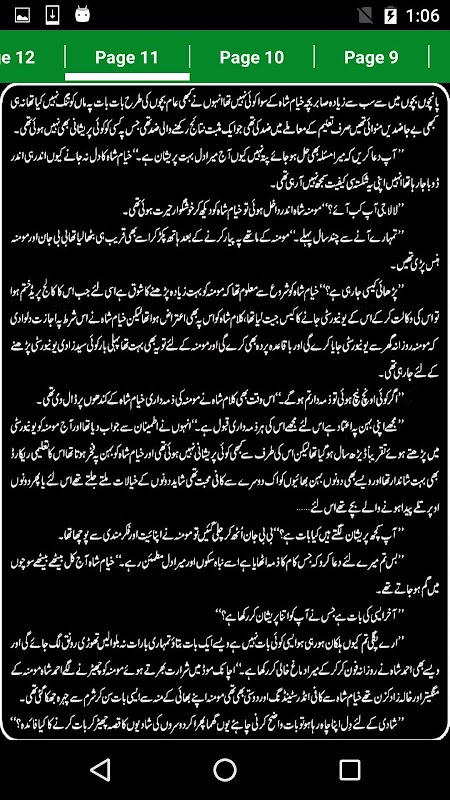 1:06
Page 12
Page 11
Page 10
Page 9
پانچوں بچوں میں سب سے زیادہ صابر بچہ خیام شاہ کے سوا کوئی نہیں تھا انہوں نے کبھی عام بچوں کی طرح بات بات پہ ماں کو تنگ نہیں کیا تھا نہ ہی
کبھی بے جا ضدیں منوائی تھیں صرف تعلیم کے معاملے میں ضد کی تھی جو ایک مثبت نتائج رکھنے والی ضد تھی جس پہ کسی کو کوئی پریشانی بھی نہیں ہوئی تھی۔
’’آپ دعا کریں کہ میرا مسئلہ بھی حل ہو جائے پتہ نہیں کیوں آج میرا دل بہت پریشان ہے۔‘‘ خیام شاہ کا دل نہ جانے کیوں اندر ہی اندر
ڈوبا جا رہا تھا انہیں اپنی یہ شکستہ سی کیفیت سمجھ نہیں آ رہی تھی۔
’’لالا جی آپ کب آئے؟‘‘ مومنہ شاہ اندر داخل ہوئی تو خیام شاہ کو دیکھ کر خوشگوار حیرت ہوئی تھی۔
’’تمہارے آنے سے چند سال پہلے۔‘‘ مومنہ کے ماتھے پہ پیار کرنے کے بعد ہاتھ پکڑ کر اسے بھی قریب ہی بٹھا لیا تھا بی بی جان اور مومنہ
ہنس پڑی تھیں۔
’’پڑھائی کیسی جا رہی ہے؟‘‘ خیام شاہ کو شروع سے معلوم تھا کہ مومنہ کو بہت زیادہ پڑھنے کا شوق ہے اسی لئے جب اس کا کالج پریڈ ختم ہوا
تو اس کی وکالت کر کے اس کے یونیورسٹی جانے کا کیس جیت لیا تھا، کلام شاہ کو اس پہ بھی اعتراض ہوا تھا لیکن خیام شاہ نے اس شرط پہ اجازت دلوا دی
کہ مومنہ روزانہ گھر سے یونیورسٹی جایا کرے گی اور باقاعدہ پردہ بھی کرے گی اور مومنہ کے لئے تو یہ بھی بہت تھا پہلی بار کوئی سید زادی یونیورسٹی پڑھنے
کے لئے جا رہی تھی۔
’’اگر کوئی اونچ نیچ ہوئی تو ذمہ دار تم ہو گے۔‘‘ اس وقت بھی کلام شاہ نے مومنہ کی ذمہ داری خیام شاہ کے کندھوں پر ڈال دی تھی۔
’’مجھے اپنی بہن پہ اعتماد ہے اس لئے مجھے اس کی ہر ذمہ داری قبول ہے۔‘‘ انہوں نے اطمینان سے جواب دیا تھا اور آج مومنہ کو یونیورسٹی
میں پڑھتے ہوئے تقریباً ڈیڑھ سال ہو گیا تھا لیکن اس کی طرف سے کبھی کوئی پریشانی نہیں ہوئی تھی اور خیام شاہ کو بہن پہ فخر ہوتا تھا اس کا تعلیمی ریکارڈ
بھی بہت شاندار تھا اور ویسے بھی دونوں بہن بھائیوں کو اک دوسرے سے کافی محبت تھی شاید دونوں کے خیالات ملتے جلتے تھے اس لئے یا پھر دونوں
اوپر تلے پیدا ہونے والے بچے تھے اس لئے......
’’آپ کچھ پریشان لگتے ہیں کیا بات ہے؟‘‘ بی بی جان اُٹھ کر چلی گئیں تو مومنہ نے اپنائیت اور فکر مندی سے پوچھا تھا۔
’’بس تم میرے لئے دعا کرو کہ جس کام کا ذمہ اٹھایا ہے اسے نباہ سکوں اور میرا دل مطمئن رہے۔‘‘ خیام شاہ آج کل بیٹھے بیٹھے سوچوں
میں گم ہو جاتے تھے۔
’’آخر ایسی کیا بات ہے جس نے آپ کو اتنا پریشان کر رکھا ہے؟‘‘
’’ارے پگلی تم کیوں ہلکان ہو رہی ہو ایسی کوئی بات نہیں ہے ویسے ایک بات بتاؤ تمہاری بارات نہ بلوا لیں تھوڑی رونق لگ جائے گی اور
ویسے بھی احمد شاہ نے روزانہ فون کر کر کے میرا دماغ خالی کر رکھا ہے۔‘‘ اچانک موڈ میں شرارت بھرتے ہوئے مومنہ کو چھیڑنے لگے احمد شاہ مومنہ کے
منگیتر اور خالہ زاد کزن تھے خیام شاہ سے کافی انڈر سٹینڈنگ اور دوستی بھی تھی مومنہ اپنے بھائی کے منہ سے ایسی بات سن کر شرم سے چہرہ جھکا گئی تھی۔
’’شادی کے لئے دِل اپنا چاہ رہا ہو تو بات واضح کرنی چاہئے یوں گھما پھرا کر دوسروں کی شادیوں کا قصہ چھیڑ کر بات کرنے کا کیا فائدہ؟‘‘